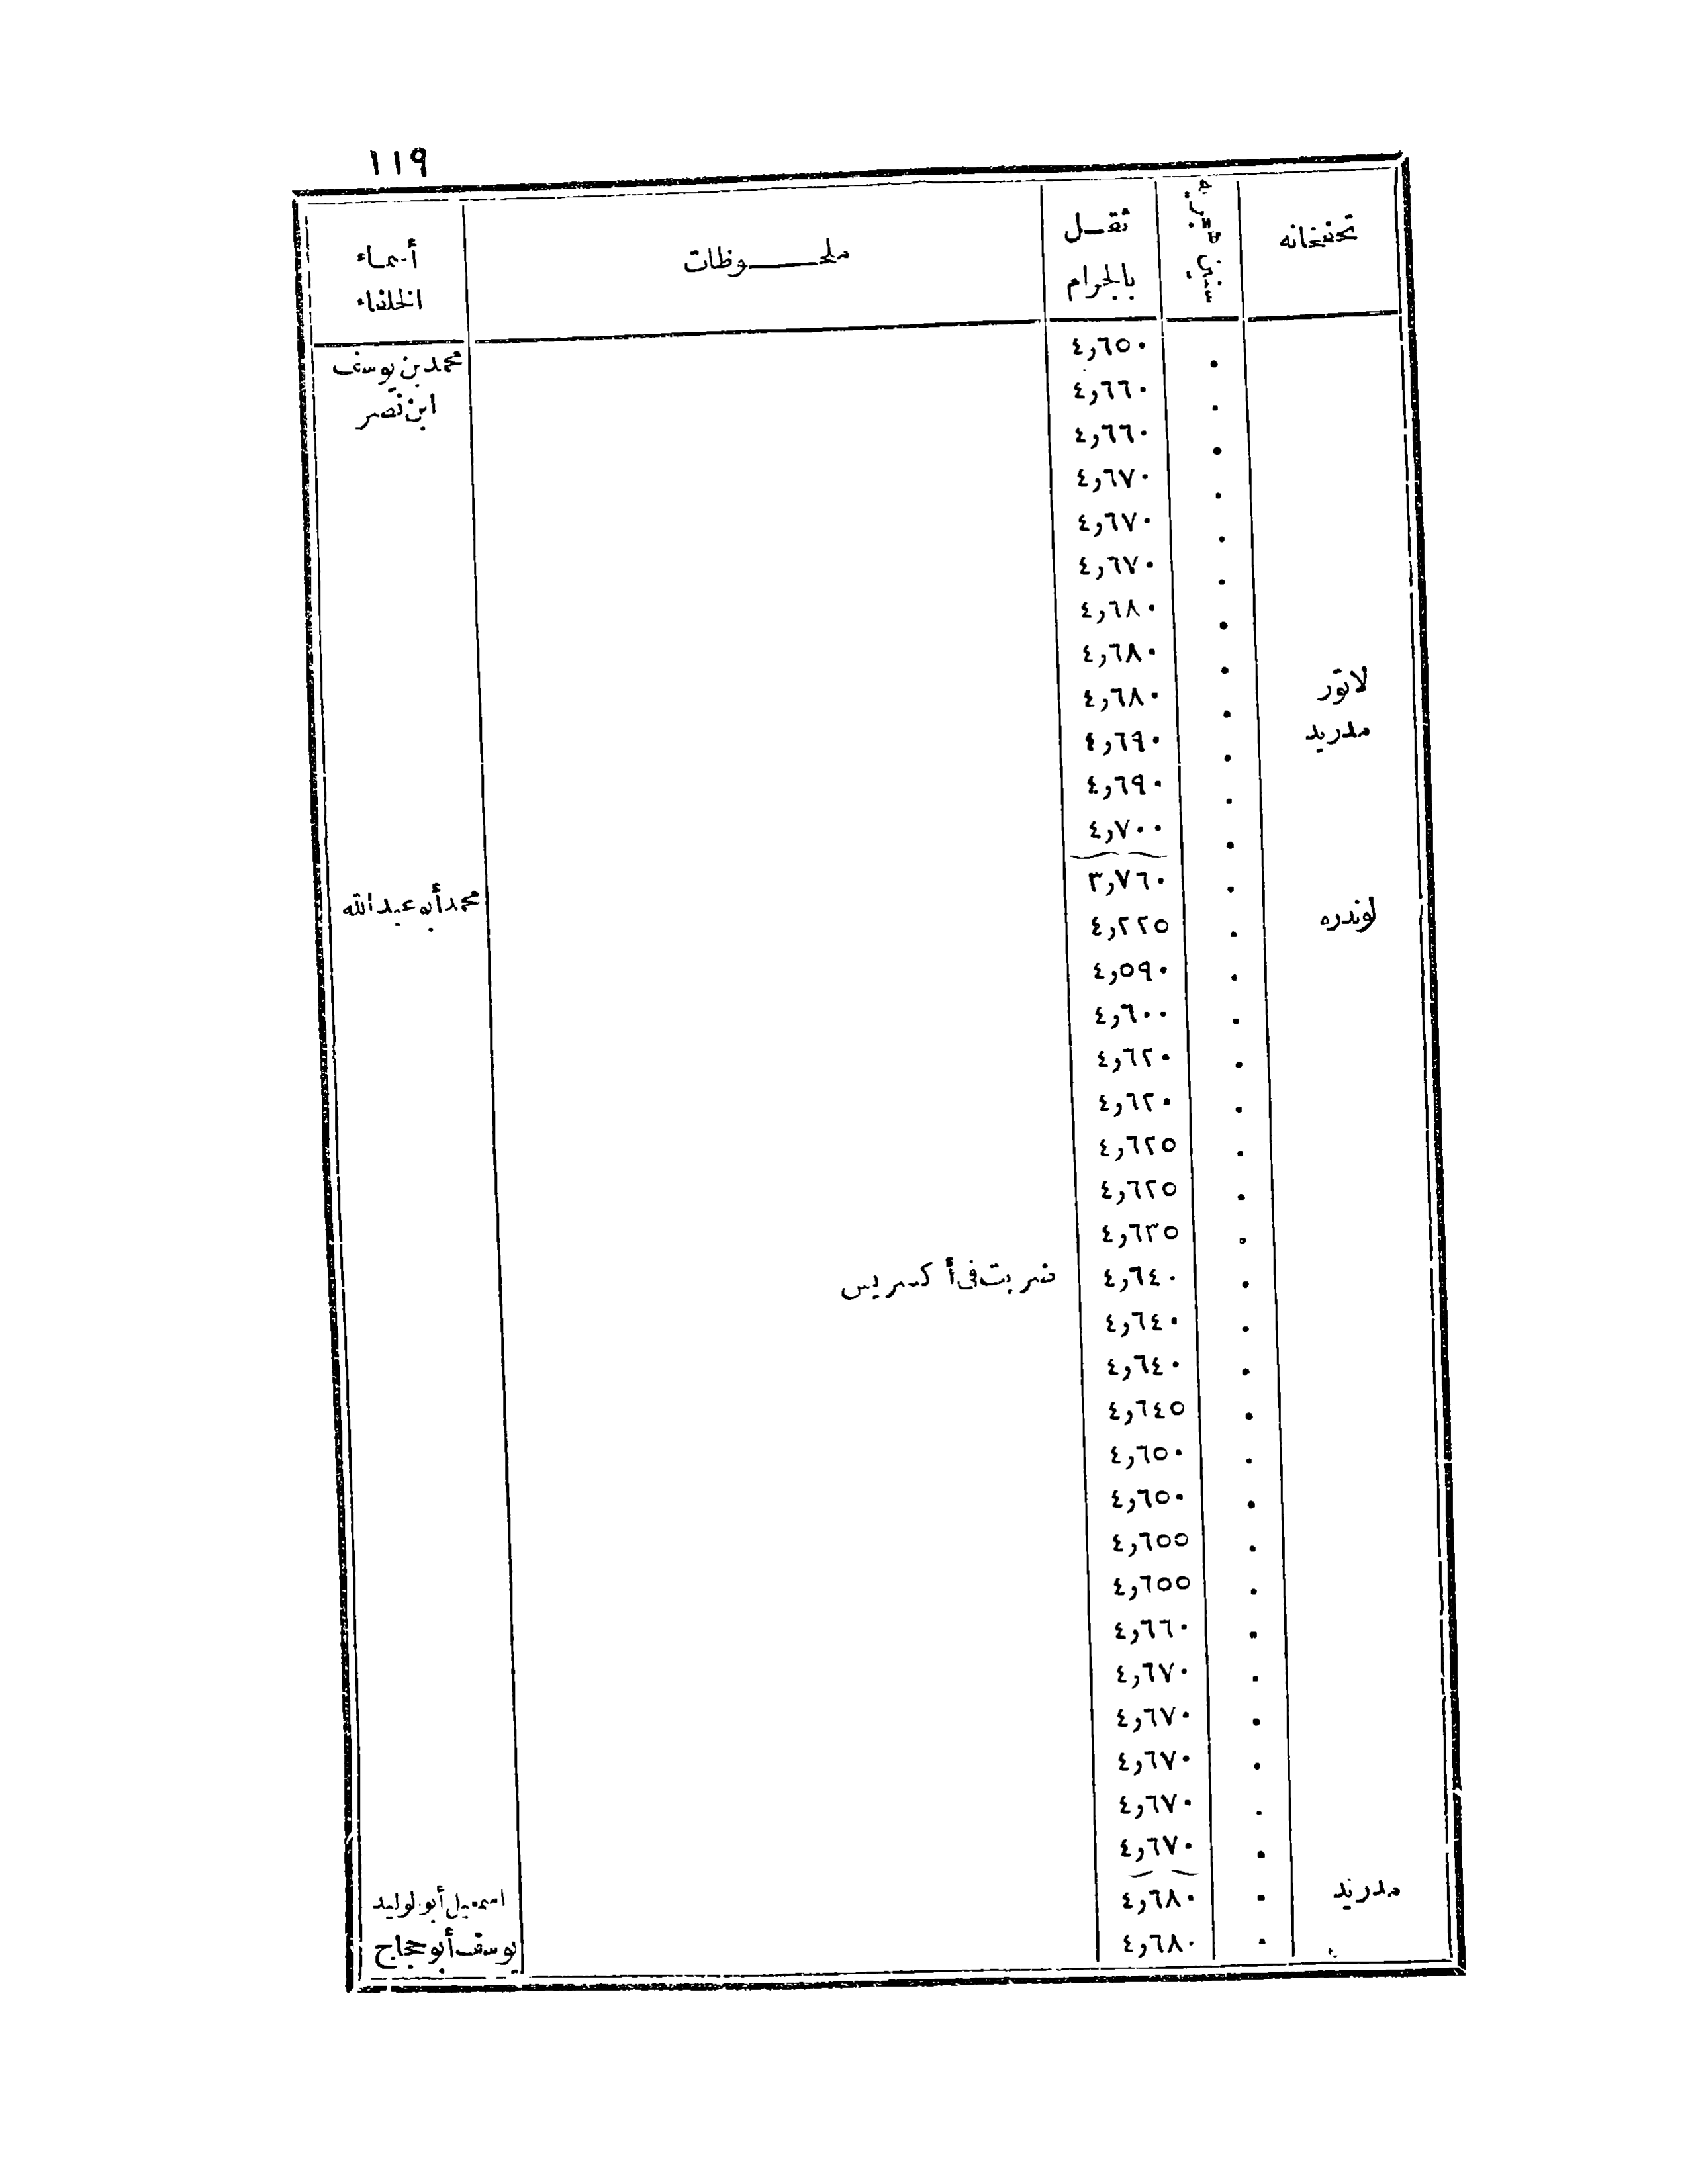 ١١٩
تحفخانه | سنين هجريه | ثقل بالجرام | ملحوظات | أسماء الخلفاء
 | ٠ | ٤,٦٥٠ | | محمد بن يوسف
 | ٠ | ٤,٦٦٠ | | ابن نصر
 | ٠ | ٤,٦٦٠ | |
 | ٠ | ٤,٦٧٠ | |
 | ٠ | ٤,٦٧٠ | |
 | ٠ | ٤,٦٧٠ | |
 | ٠ | ٤,٦٨٠ | |
 | ٠ | ٤,٦٨٠ | |
لاتور | ٠ | ٤,٦٨٠ | |
مدريد | ٠ | ٤,٦٩٠ | |
 | ٠ | ٤,٦٩٠ | |
 | ٠ | ٤,٧٠٠ | |
 | ٠ | ٣,٧٦٠ | | محمد أبو عبد الله
لوندره | ٠ | ٤,٢٢٥ | |
 | ٠ | ٤,٥٩٠ | |
 | ٠ | ٤,٦٠٠ | |
 | ٠ | ٤,٦٢٠ | |
 | ٠ | ٤,٦٢٠ | |
 | ٠ | ٤,٦٢٥ | |
 | ٠ | ٤,٦٢٥ | |
 | ٠ | ٤,٦٣٥ | |
 | ٠ | ٤,٦٤٠ | ضربت فى أكسريس |
 | ٠ | ٤,٦٤٠ | |
 | ٠ | ٤,٦٤٠ | |
 | ٠ | ٤,٦٤٥ | |
 | ٠ | ٤,٦٥٠ | |
 | ٠ | ٤,٦٥٠ | |
 | ٠ | ٤,٦٥٥ | |
 | ٠ | ٤,٦٥٥ | |
 | ٠ | ٤,٦٦٠ | |
 | ٠ | ٤,٦٧٠ | |
 | ٠ | ٤,٦٧٠ | |
 | ٠ | ٤,٦٧٠ | |
 | ٠ | ٤,٦٧٠ | |
 | ٠ | ٤,٦٧٠ | |
مدريد | ٠ | ٤,٦٨٠ | | اسمعيل أبو لوليد
 | ٠ | ٤,٦٨٠ | | يوسف أبو حجاج